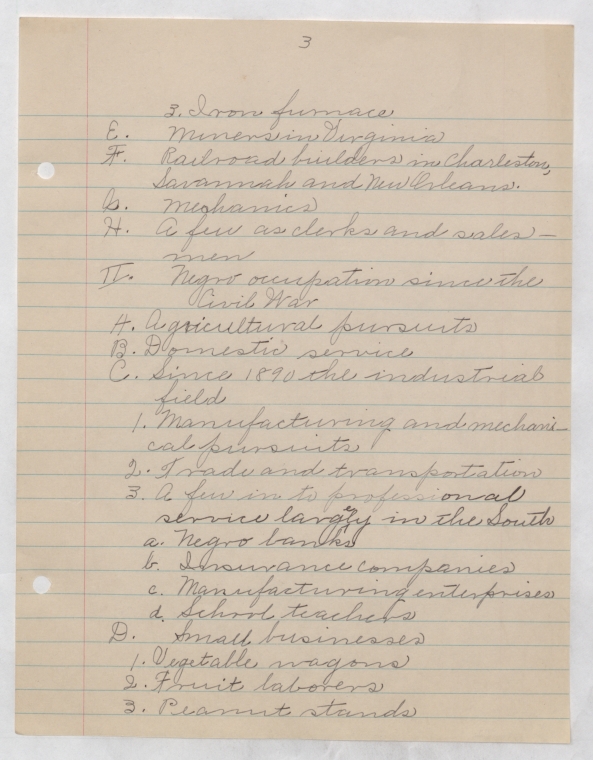 3
3. Iron furnace
E. Miners in Virginia
F. Railroad builders in Charleston,
Savannah and New Orleans.
G. Mechanics
H. A few as clerks and sales-
men
II. Negro ocupation since the
Civil War
A. Agricultural pursuits
B. Domestic service
C. Since 1890 the industrial
field
1. Manufacturing and mechani-
cal pursuits
2. Trade and transportation
3. A few in to professional
service largely in the South
a. Negro banks
b. Insurance companies
c. Manufacturing enterprises
d. School teachers
D. Small businesses
1. Vegetable wagons
2. Fruit laborers
3. Peanut stands